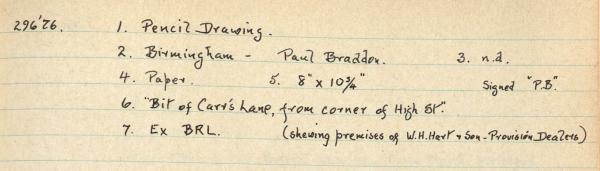 296'76. 1. Pencil Drawing.
2. Birmingham - Paul Braddon. 3. n.d.
4. Paper. 5. 8" x 10¾" Signed "P.B."
6. "Bit of Carr's Lane, from corner of High St".
7. Ex BRL. (shewing premises of W.H. Hart & Son - Provision Dealers)